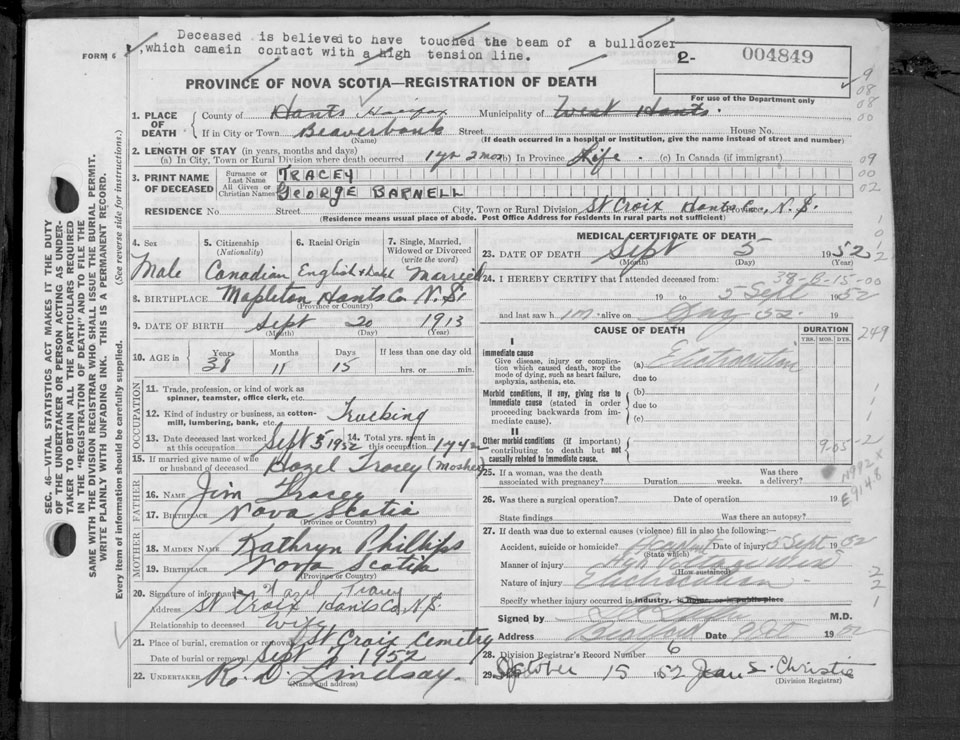 Deceased is believed to have touched the beam of a bulldozer
,which camein contact with a high tension line.
FORM 6
2- 004849
PROVINCE OF NOVA SCOTIA—REGISTRATION OF DEATH
For use of the Department only
1. PLACE OF DEATH
County of Hants Halifax Municipality of West Hants.
If in City or Town Beaverbank Street House No.
(Name) (If death occurred in a hospital or institution, give the name instead of street and number)
2. LENGTH OF STAY (in years, months and days)
(a) In City, Town or Rural Division where death occurred 1 yr 2 mos (b) In Province Life (c) In Canada (if immigrant)
3. PRINT NAME OF DECEASED
Surname or Last Name TRACEY
All Given or Christian Names GEORGE BARNELL
RESIDENCE No. Street City, Town or Rural Division St Croix Hants Co., Province N.S.
(Residence means usual place of abode. Post Office Address for residents in rural parts not sufficient)
4. Sex Male
5. Citizenship (Nationality) Canadian
6. Racial Origin English +
7. Single, Married, Widowed or Divorced (write the word) Married
8. BIRTHPLACE Mapleton Hants Co N.S.
(Province or Country)
9. DATE OF BIRTH Sept 20 1913
(Month) (Day) (Year)
10. AGE is Years 38 Months 11 Days 15 If less than one day old hrs. or min.
OCCUPATION
11. Trade, profession, or kind of work as spinner, teamster, office clerk, etc.
12. Kind of industry or business, as cotton-mill, lumbering, bank, etc. Trucking
13. Date deceased last worked at this occupation Sept 5 1952 14. Total yrs. spent in this occupation
15. If married give name of wife or husband of deceased Hazel Tracey (Mosher)
FATHER
16. NAME Jim Tracey
17. BIRTHPLACE Nova Scotia
(Province or Country)
MOTHER
18. MAIDEN NAME Kathryn Phillips
19. BIRTHPLACE Nova Scotia
(Province or Country)
20. Signature of informant Hazel Tracey
Address St Croix Hants Co, N.S.
Relationship to deceased Wife
21. Place of burial, cremation or removal St Croix Cemetry
Date of burial or removal Sept 1952
22. UNDERTAKER R. D. Lindsay.
(Name and address)
MEDICAL CERTIFICATE OF DEATH
23. DATE OF DEATH Sept 5 1952
(Month) (Day) (Year)
24. I HEREBY CERTIFY that I attended deceased from:
38-B-15-00
19 to 5 Sept 1952
and last saw h im alive on 19
CAUSE OF DEATH
DURATION
YRS. MOS. DYS.
I
Immediate cause
Give disease, injury or complication which caused death, NOT the mode of dying, such as heart failure, asphyxia, asthenia, etc.
(a) Electrocution
due to
Morbid conditions, if any, giving rise to immediate cause (stated in order proceeding backwards from immediate cause).
(b)
due to
(c)
II
Other morbid conditions (if important) contributing to death but not causally related to immediate cause.
25. If a woman, was the death associated with pregnancy? Duration weeks. Was there a delivery?
26. Was there a surgical operation? Date of operation 19
State findings Was there an autopsy?
27. If death was due to external causes (violence) fill in also the following:—
Accident, suicide or homicide? Accident Date of injury 5 Sept 1952
(State which)
Manner of injury High
(How sustained)
Nature of injury Electrocution
Specify whether injury occurred in industry, in home, or in public place
Signed by M.D.
Address Bedford Date 9 Oct 1952
28. Division Registrar's Record Number 6
29. October 15 1952 Jean S. Christie
(Division Registrar)
SEC. 46—VITAL STATISTICS ACT MAKES IT THE DUTY
OF THE UNDERTAKER OR PERSON ACTING AS UNDER-
TAKER TO OBTAIN ALL THE PARTICULARS REQUIRED
IN THE "REGISTRATION OF DEATH" AND TO FILE THE
SAME WITH THE DIVISION REGISTRAR WHO SHALL ISSUE THE BURIAL PERMIT.
WRITE PLAINLY WITH UNFADING INK. THIS IS A PERMANENT RECORD.
Every item of information should be carefully supplied. (See reverse side for instructions.)
9
08
08
00
09
00
02
249
E914.8